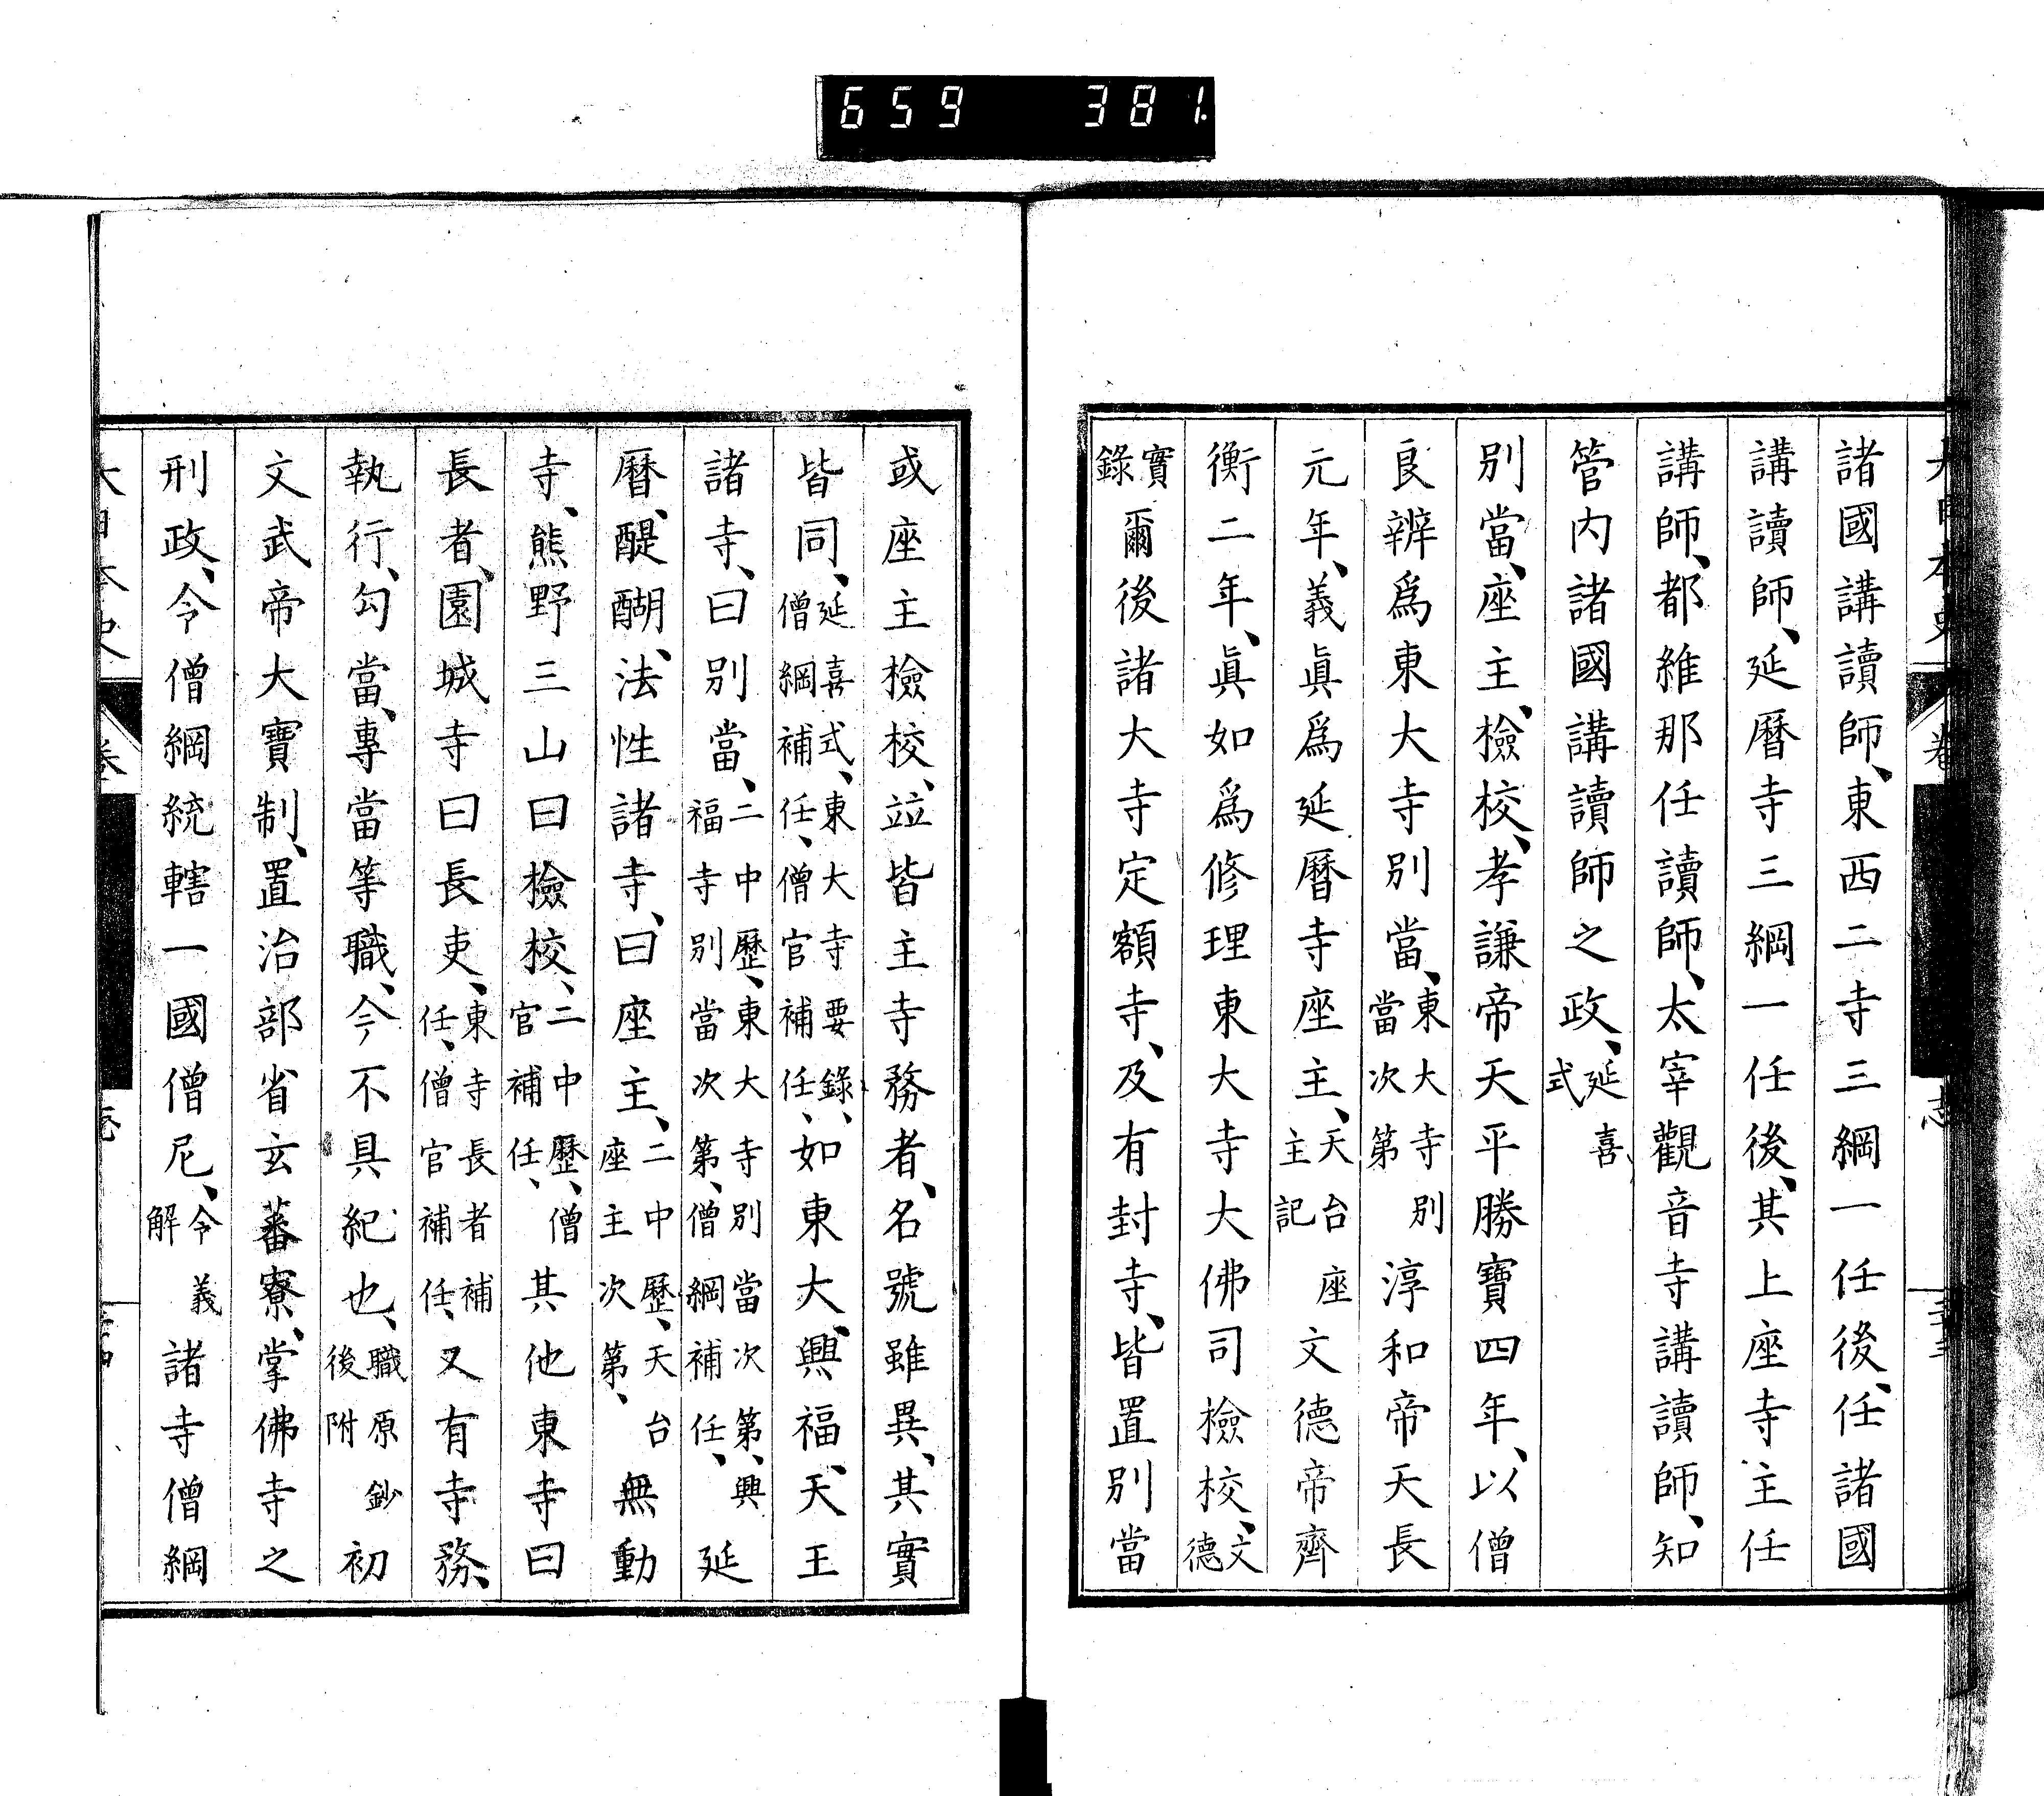 659 381.
諸國講讀師、東西二寺三綱一任後、任諸國
講讀師、延曆寺三綱一任後、其上座寺主任
講師、都維那任讀師、太宰觀音寺講讀師、知
管内諸國講讀師之政、延喜式
別當、座主、檢校、孝謙帝天平勝寶四年、以僧
良辨爲東大寺別當、東大寺別當次第淳和帝天長
元年、義眞爲延曆寺座主、天台座主記文德帝齊
衡二年、眞如爲修理東大寺大佛司檢校、文德
實錄爾後諸大寺定額寺、及有封寺、皆置別當
或座主檢校、竝皆主寺務者、名號雖異、其實
皆同、延喜式、東大寺要錄、僧綱補任、僧官補任、如東大、興福、天王
諸寺、曰別當、二中歷、東大寺別當次第、興福寺別當次第、僧綱補任、延
曆、醍醐、法性諸寺、曰座主、二中歷、天台座主次第、無動
寺、熊野三山曰檢校、二中歷、僧官補任、其他東寺曰
長者、園城寺曰長吏、東寺長者補任、僧官補任、又有寺務、
執行、勾當、專當等職、今不具紀也、職原鈔後附初
文武帝大寶制、置治部省玄蕃寮、掌佛寺之
刑政、令僧綱統轄一國僧尼、令義解諸寺僧綱